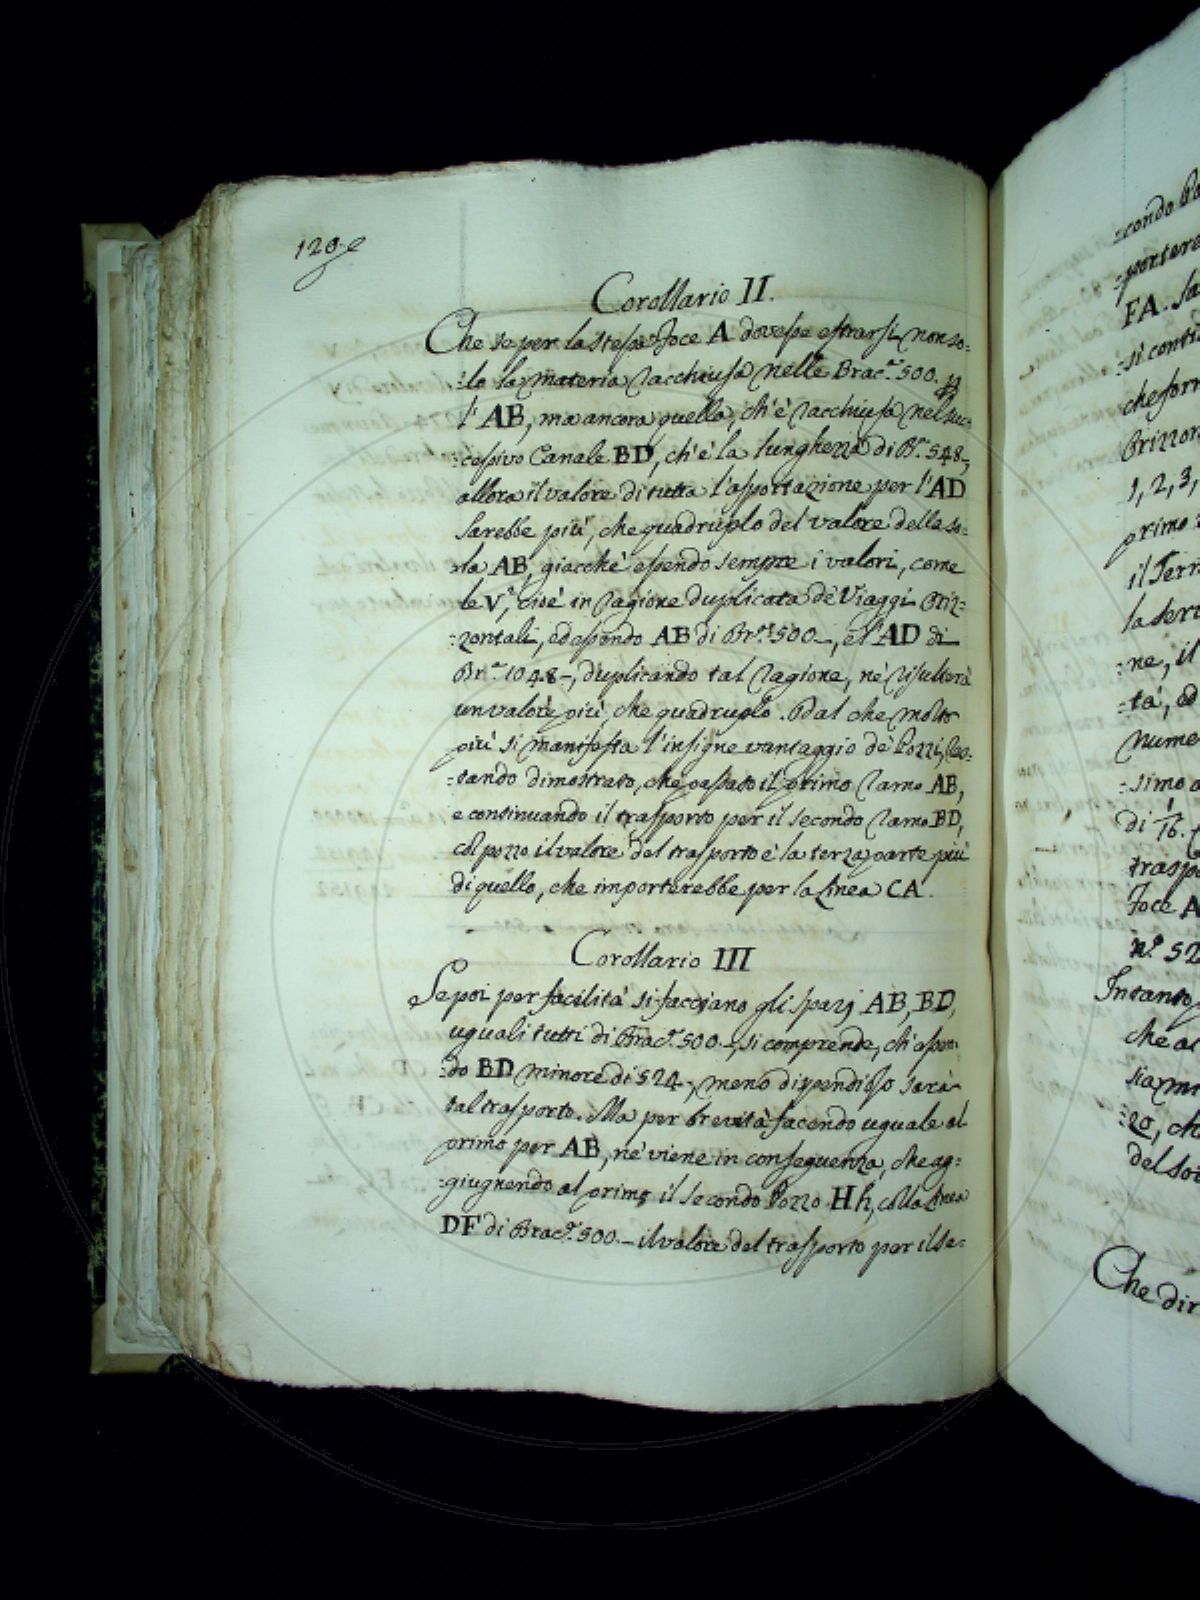 120.
Corollario II.
Che se per la stessa Foce A dovesse estrarsi non so:
:lo la materia racchiusa nelle Brac.ª 500. p
l'AB, ma ancora quella, ch'è racchiusa nel suc:
:cessivo Canale BD, ch'è la lunghezza di Br.ª 548-,
allora il valore di tutta l'asportazione per l'AD
sarebbe più, che quadruplo del valore della so:
:la AB, giacchè essendo sempre i valori, come
le V.ª, cioè in ragione duplicata dè Viaggi Oriz:
:zontali, ed essendo AB di Br.ª 500-, e l'AD di
Br.ª 1048-, duplicando tal ragione, nè risulterà
un valore più, che quadruplo. Dal che molto
più si manifesta l'insigne vantaggio dè Pozzi, res:
:tando dimostrato, che passato il primo ramo AB,
e continuando il trasporto per il secondo ramo BD,
col pozzo il valore del trasporto è la terza parte più
di quello, che importerebbe per la Linea CA.
Corollario III
Se poi per facilità si facciano gli spazj AB, BD,
uguali tutti di Brac.ª 500.-, si comprende, ch'essen:
:do BD minore di 524-, meno dispendioso sarà
tal trasporto. Ma per brevità facendo uguale al
primo per AB, nè viene in conseguenza, che ag:
:giugnendo al primo il secondo Pozzo Hh, colla Linea
DF di Brac.ª 500.- il valore del trasporto per il se:
:condo
:portere
FA. Sa
:si contin
che form
Orizzon
1, 2, 3,
primo
il Term
la seri
:ne, il
:tà, ed
nume
:simo
di 16.
trasp
Foce A
n.º 52
Intanto
che al
sia mi
:zo, ch
del so
Che dir